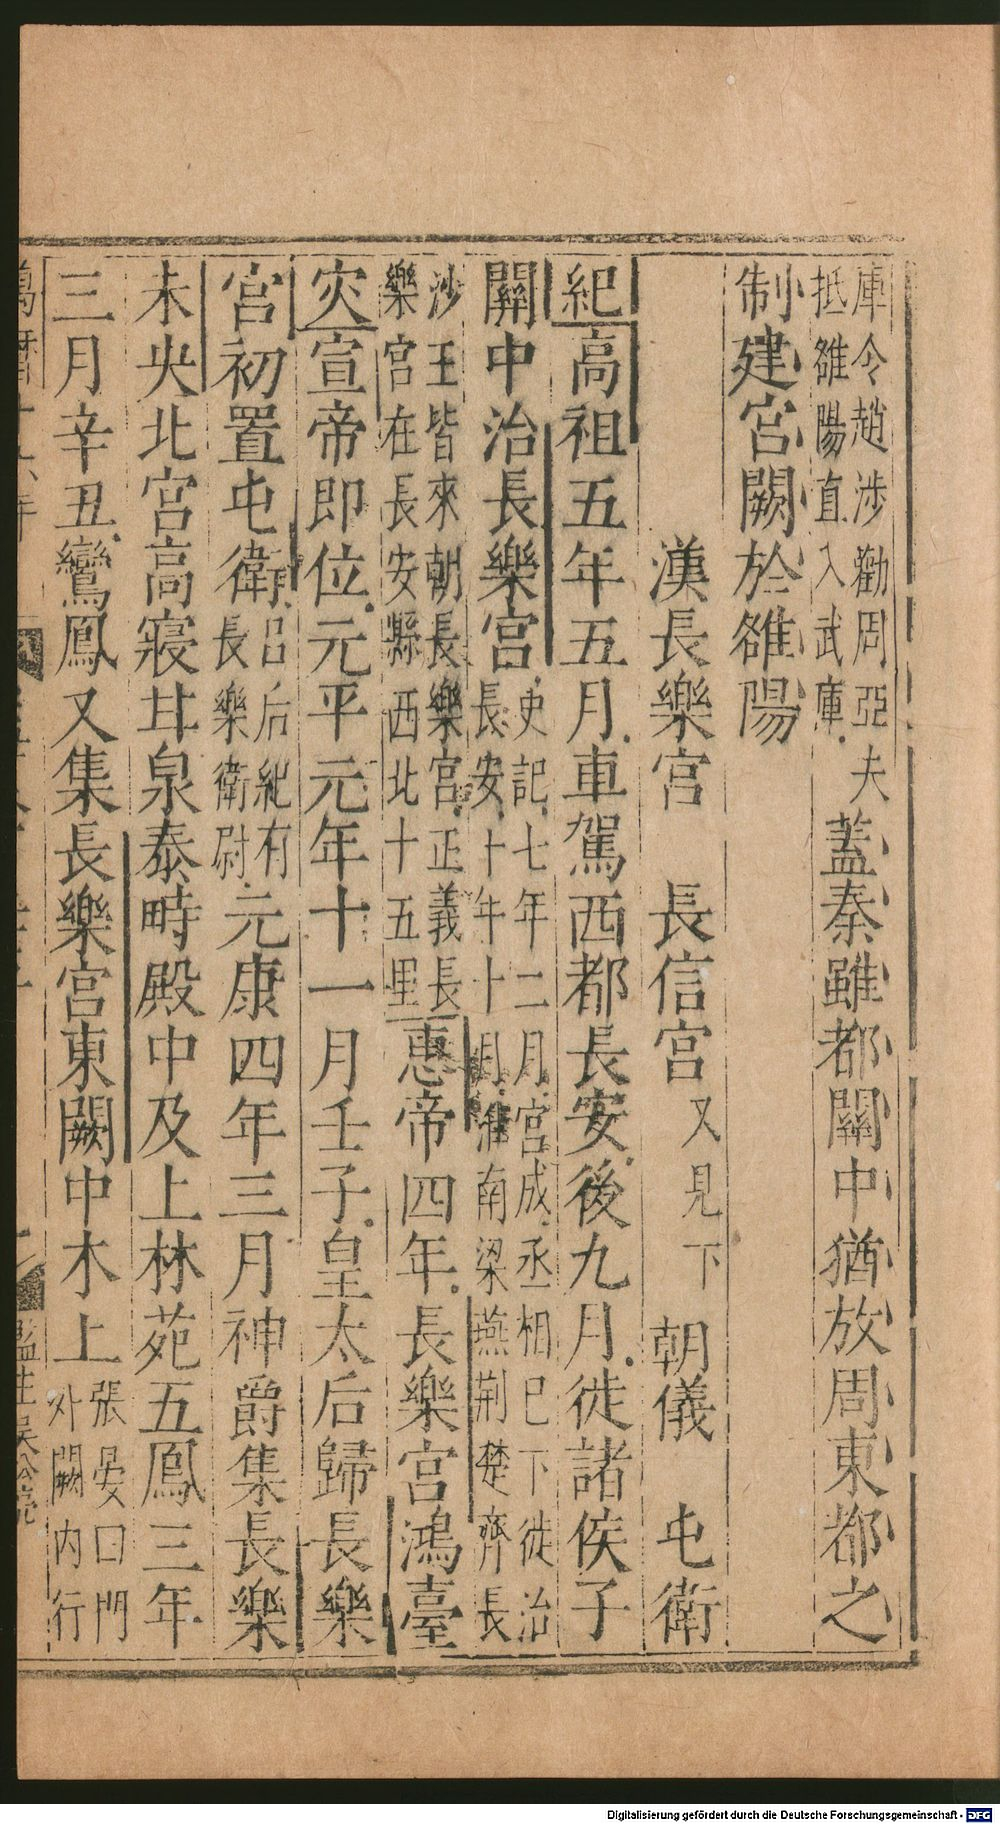 庫令趙涉勸周亞夫
抵雒陽直入武庫
蓋秦雖都關中猶放周東都之
制建宮闕於雒陽
漢長樂宮 長信宮 又見下 朝儀 屯衛
紀高祖五年五月車駕西都長安後九月徙諸侯子
關中治長樂宮 史記七年二月宮成丞相已下徙治
長安十年十月淮南梁燕荆楚齊長
沙王皆來朝長樂宮正義長
樂宮在長安縣西北十五里
惠帝四年長樂宮鴻臺
灾宣帝即位元平元年十一月壬子皇太后歸長樂
宮初置屯衛 呂后紀有
長樂衛尉
元康四年三月神爵集長樂
未央北宮高寢甘泉泰畤殿中及上林苑五鳳三年
三月辛丑鸞鳳又集長樂宮東闕中木上 張晏曰門
外闕内行
萬曆十六年
監生吳
Digitalisierung gefördert durch die Deutsche Forschungsgemeinschaft - DFG